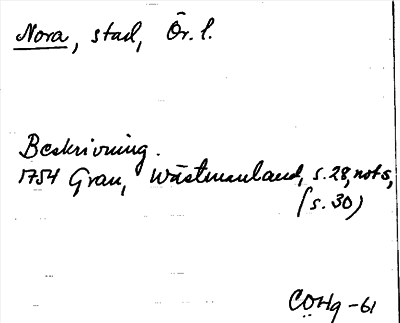 Nora, stad, Ör. l.
Beskrivning.
1754 Grau, Wästmanland, s. 28, not s,
(s. 30)
COHg -61